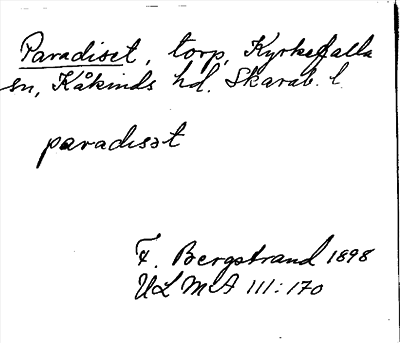 Paradiset, torp, Kyrkefalla
sn, Kåkinds hd. Skarab. l.
paradisət
F. Bergstrand 1898
ULMA 111:170